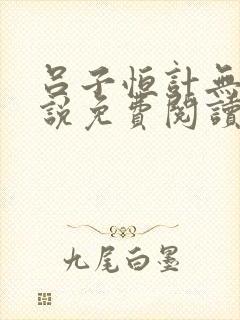 呂子恒計無
說免費閱讀
九尾白墨